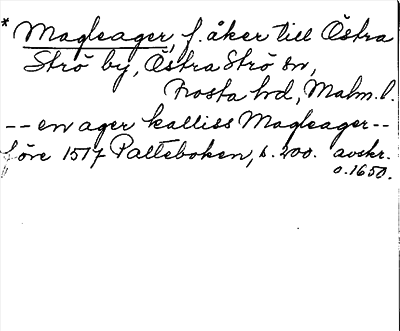 * Magleager, f. åker till Östra
Strö by, Östra Strö sn,
Frosta hd, Malm. l.
-- en ager kalliss Magleager --
före 1517 Palteboken, s. 200. avskr.
o. 1650.